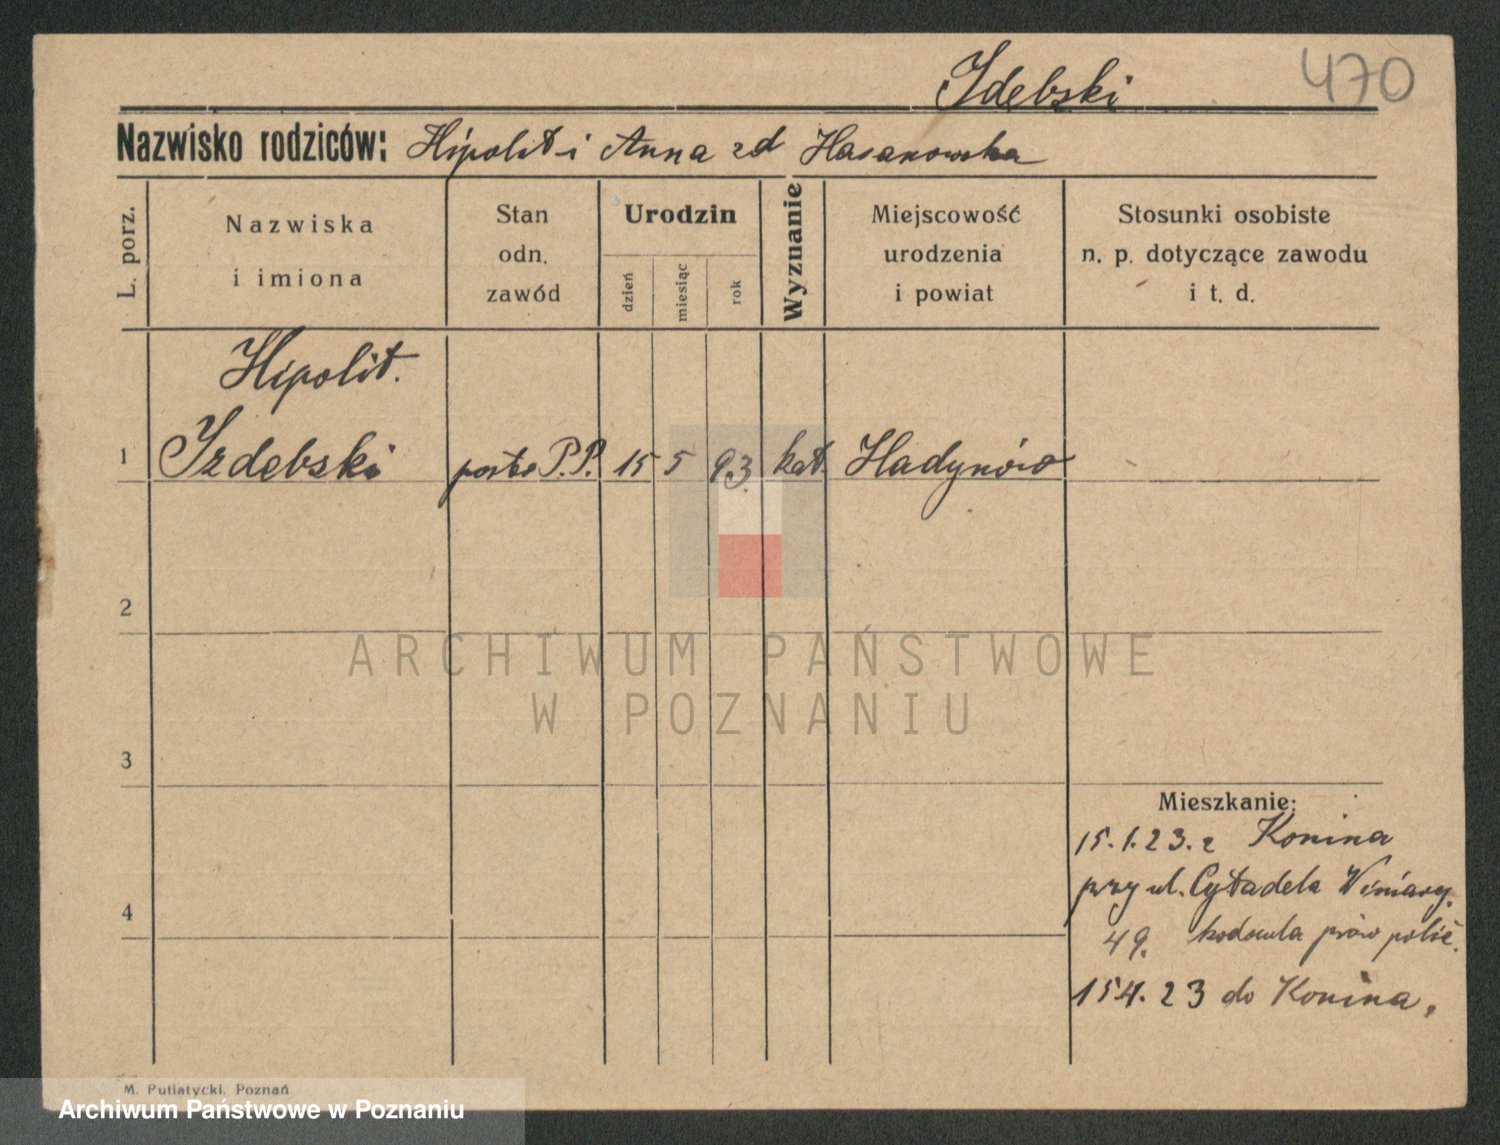 470
Idebski
Nazwisko rodziców: Hipolit i Anna zd Hasanowska
L. porz.
Nazwiska
i imiona
Stan
odn.
zawód
Urodzin
dzień
miesiąc
rok
Wyznanie
Miejscowość
urodzenia
i powiat
Stosunki osobiste
n. p. dotyczące zawodu
i t. d.
Hipolit.
1 Izdebski P.P. 15 5 93. kat. Hadynów
2
ARCHIWUM PAŃSTWOWE
W POZNANIU
3
Mieszkanie:
15.1.23. z Konina
przy ul. Cytadela Winiary.
4
49.
154.23 do Konina.
M. Putiatycki, Poznań
Archiwum Państwowe w Poznaniu